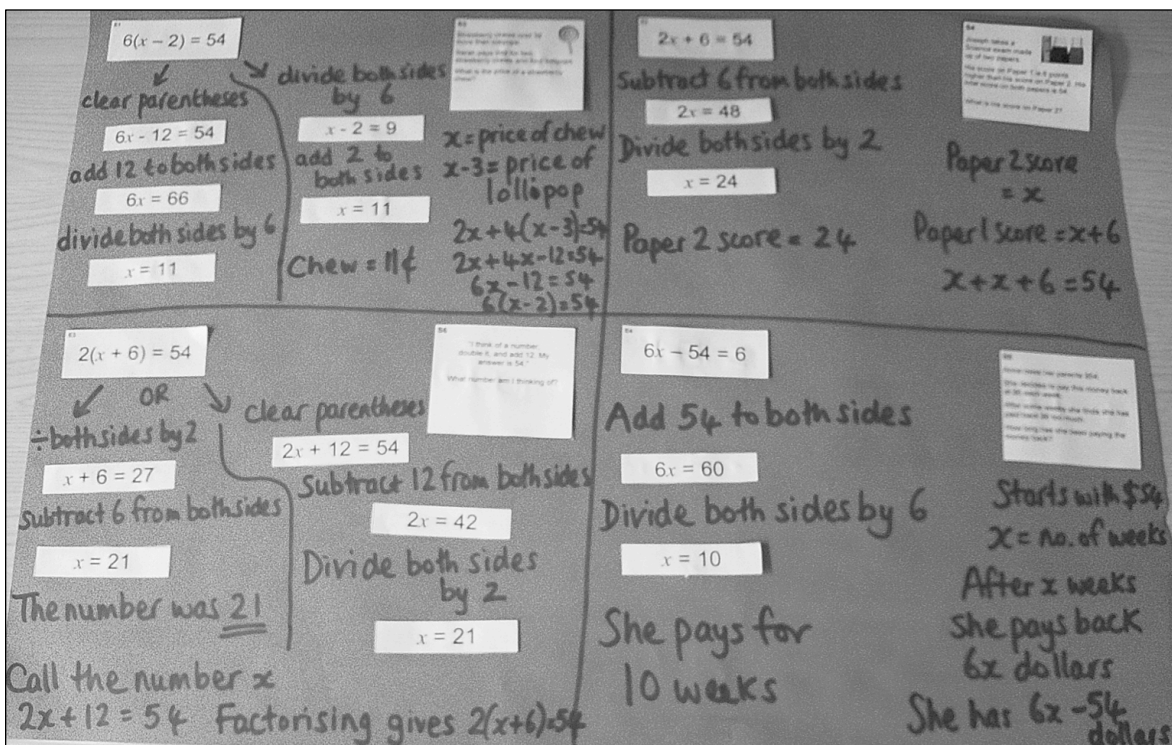 E1
6(x – 2) = 54
clear parentheses
6x - 12 = 54
add 12 to both sides
6x = 66
divide both sides by 6
x = 11
divide both sides
by 6
x - 2 = 9
add 2 to
both sides
x = 11
Chew = 11¢
Strawberry chews cost 3¢
more than lollipops.
What is the price of a strawberry
chew?
x = price of chew
x-3 = price of
lollipop
2x+4(x-3)=54
2x+4x-12=54
6x-12=54
6(x-2)=54
2x + 6 = 54
Subtract 6 from both sides
2x = 48
Divide both sides by 2
x = 24
Paper 2 score = 24
S4
Joseph takes a
Science exam made
up of two papers.
His score on Paper 1 is 6 points
higher than his score on Paper 2. His
total score on both papers is 54.
What is his score on Paper 2?
Paper 2 score
= x
Paper 1 score = x+6
x+x+6=54
E3
2(x + 6) = 54
OR
÷ both sides by 2
x + 6 = 27
Subtract 6 from both sides
x = 21
The number was 21
clear parentheses
2x + 12 = 54
Subtract 12 from both sides
2x = 42
Divide both sides
by 2
x = 21
"I think of a number,
double it, and add 12. My
answer is 54."
What number am I thinking of?
Call the number x
2x+12=54 Factorising gives 2(x+6)=54
E4
6x – 54 = 6
Add 54 to both sides
6x = 60
Divide both sides by 6
x = 10
She pays for
10 weeks
She decides to pay this money back
at $6 each week.
After some weeks she finds she has
paid back $6 too much.
How long has she been paying the
money back?
Starts with $54
x = no. of weeks
After x weeks
she pays back
6x dollars
She has 6x -54
dollars